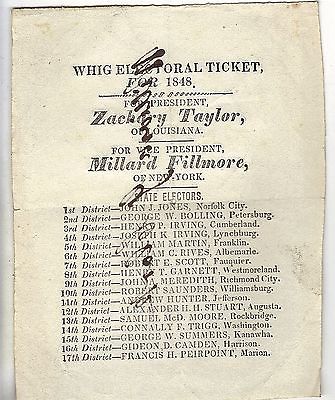 WHIG ELECTORAL TICKET,
FOR 1848.
FOR PRESIDENT,
Zachary Taylor,
OF LOUISIANA.
FOR VICE PRESIDENT,
Millard Fillmore,
OF NEW YORK.
STATE ELECTORS.
1st District—JOHN J. JONES, Norfolk City.
2nd District—GEORGE W. BOLLING, Petersburg.
3rd District—HENRY P. IRVING, Cumberland.
4th District—JOSEPH K. IRVING, Lynchburg.
5th District—WILLIAM MARTIN, Franklin.
6th District—WILLIAM C. RIVES, Albemarle.
7th District—ROBERT E. SCOTT, Fauquier.
8th District—HENRY T. GARNETT, Westmoreland.
9th District—JOHN A. MEREDITH, Richmond City.
10th District—ROBERT SAUNDERS, Williamsburg.
11th District—ANDREW HUNTER, Jefferson.
12th District—ALEXANDER H. H. STUART, Augusta.
13th District—SAMUEL McD. MOORE, Rockbridge.
14th District—CONNALLY F. TRIGG, Washington.
15th District—GEORGE W. SUMMERS, Kanawha.
16th District—GIDEON D. CAMDEN, Harrison.
17th District—FRANCIS H. PEIRPOINT, Marion.